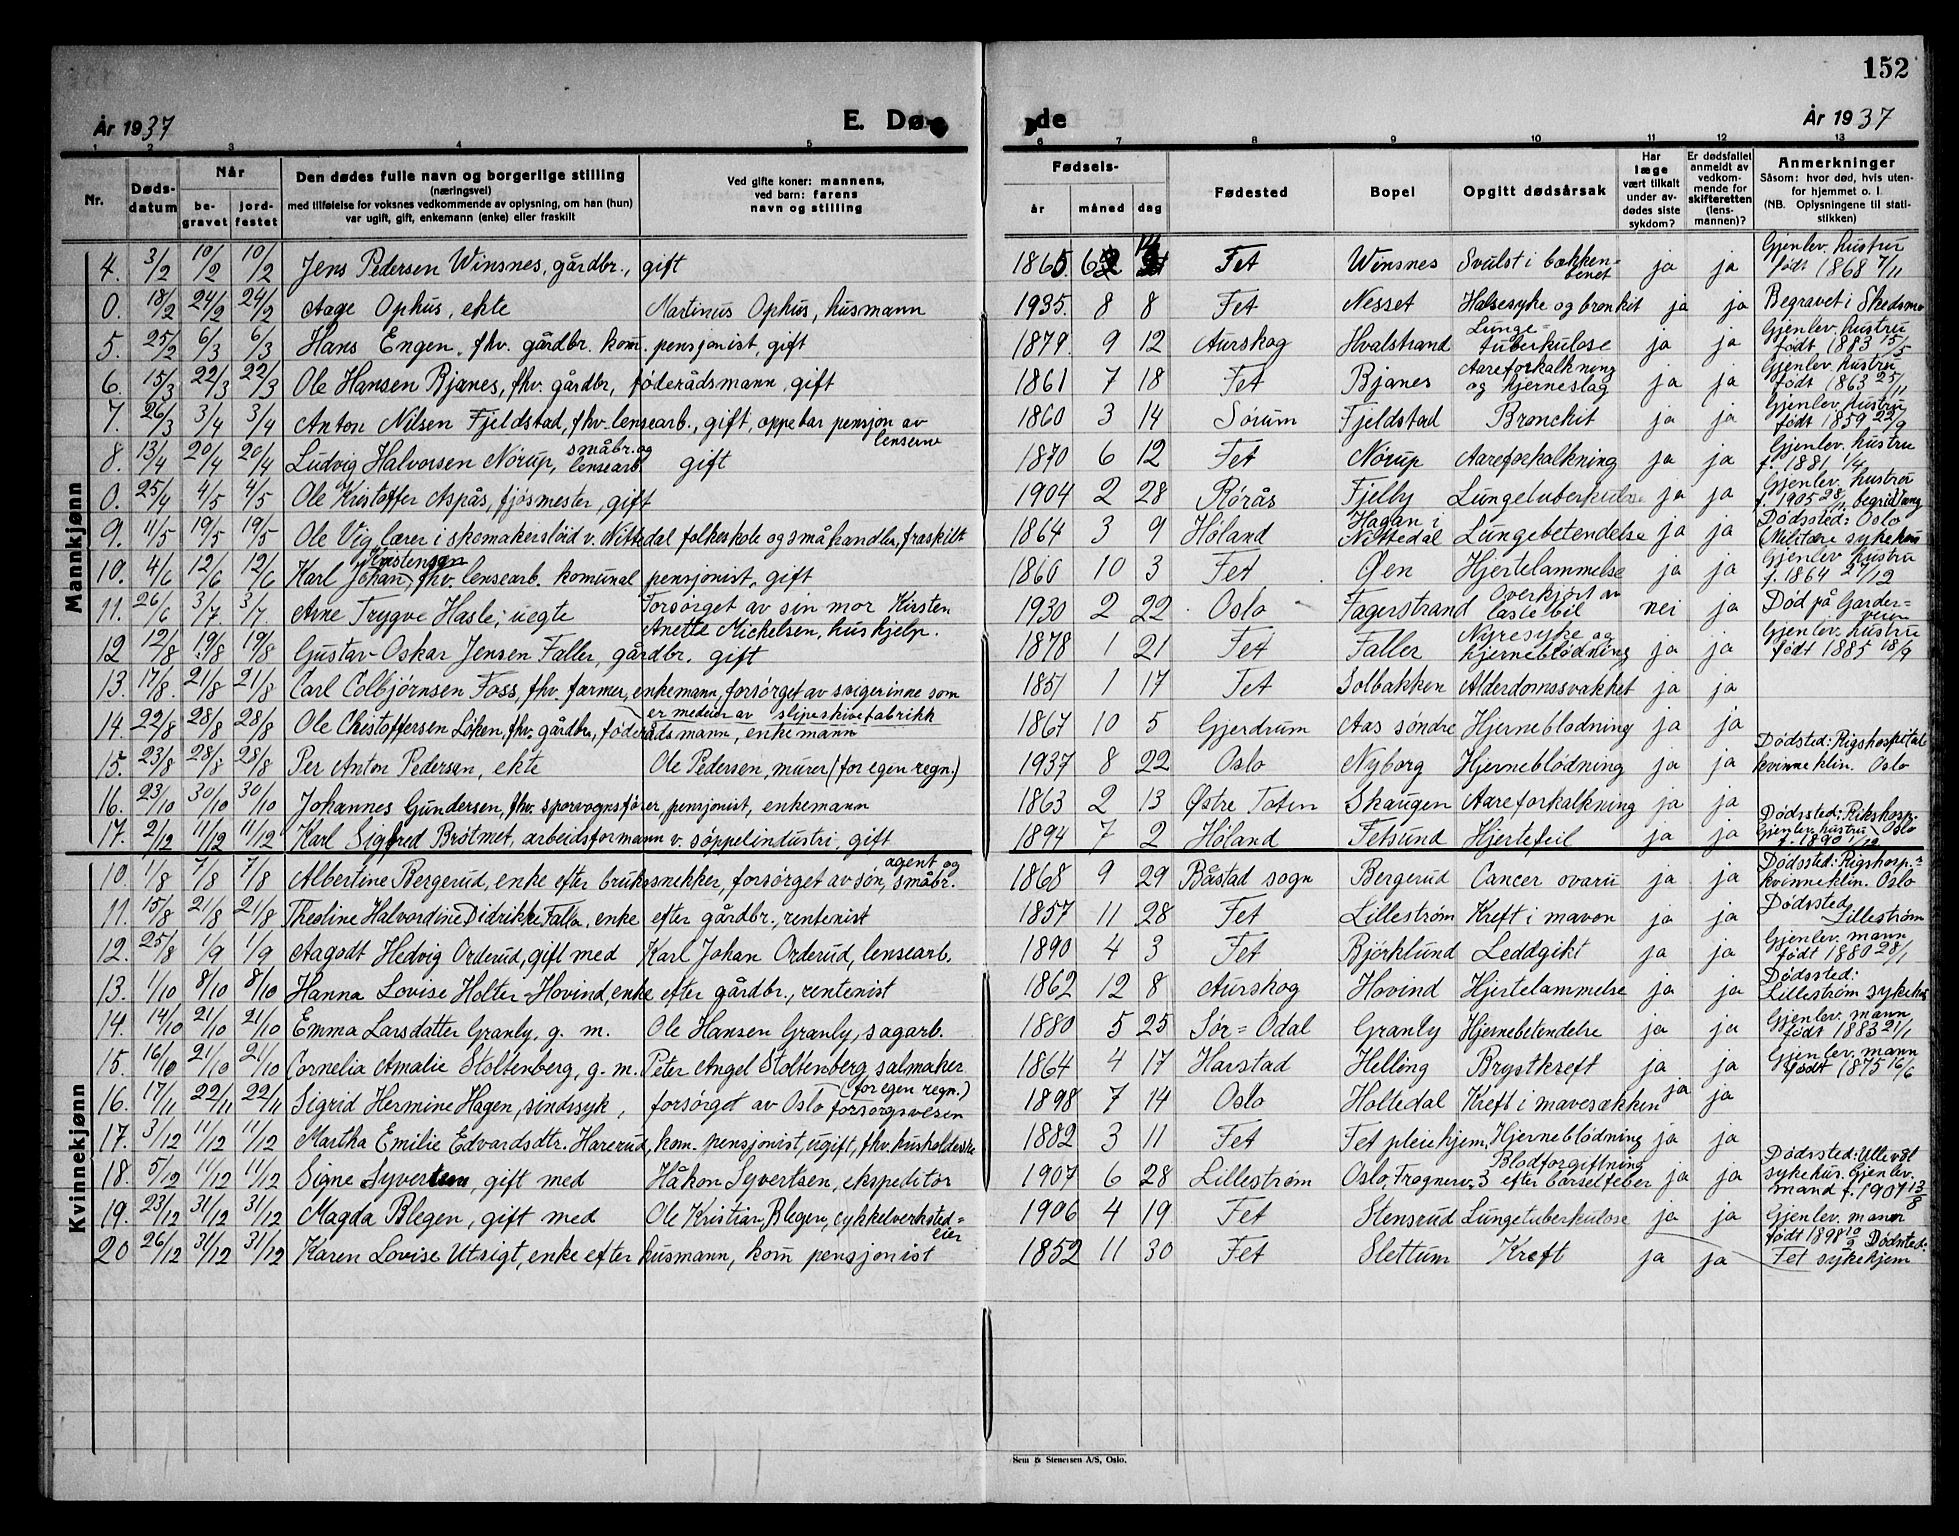 152
År 1937 E. Døde År 1937
1 2 3 4 5 6 7 8 9 10 11 12 13
Nr. Døds-datum Når be-gravet jord-festet Den dødes fulle navn og borgerlige stilling (næringsvei) med tilføielse for voksnes vedkommende av oplysning, om han (hun) var ugift, gift, enkemann (enke) eller fraskilt Ved gifte koner: mannens, ved barn: farens navn og stilling Fødsels- år måned dag Fødested Bopel Opgitt dødsårsak Har læge vært tilkalt under av-dødes siste sykdom? Er dødsfallet anmeldt av vedkom-mende for skifteretten (lens-mannen)? Anmerkninger Såsom: hvor død, hvis uten-for hjemmet o. l. (NB. Oplysningene til stati-stikken)
Mannkjønn
4. 3/2 10/2 10/2 Jens Pedersen Winsnes, gårdbr., gift 1865 6 14 Fet Winsnes Svulst i bækken-benet ja ja Gjenlev. hustru født 1868 7/11
0. 18/2 24/2 24/2 Aage Ophus, ekte Martinus Ophus, husmann 1935. 8 8 Fet Nesset Halsesyke og bronkit ja ja Begravet i Skedsmo
5. 25/2 6/3 6/3 Hans Engen, fhv. gårdbr. kom. pensjonist, gift 1879. 9 12 Aurskog Hvalstrand Lunge-tuberkulose ja ja Gjenlev. hustru født 1883 15/5
6. 15/3 22/3 22/3 Ole Hansen Bjanes, fhv. gårdbr, føderådsmann, gift 1861 7 18 Fet Bjanes Aareforkalkning og hjerneslag ja ja Gjenlev. hustru født 1863 25/11
7. 26/3 3/4 3/4 Anton Nilsen Fjeldstad, fhv. lensearb., gift, oppebar pensjon av lensene 1860 3 14 Sørum Fjeldstad Bronchit ja ja Gjenlev. hustru født 1859 22/9
8. 13/4 20/4 20/4 Ludvig Halvorsen Nørup, småbr. og lensearb. gift 1870 6 12 Fet Nørup Aareforkalkning ja ja Gjenlev. hustru f. 1881 1/4
0. 25/4 4/5 4/5 Ole Kristoffer Aspås, fjøsmester, gift 1904 2 28 Rørås Fjelby Lungetuberkulose ja ja Gjenlev. hustru f. 1905 28/11
9. 11/5 19/5 19/5 Ole Vig lærer i skomakersløid v. Nittedal folkeskole og småhandler, fraskilt 1864 3 9 Høland Hagan i Nittedal Lungebetendelse ja ja Dødssted: Oslo Militære sykehus
10. 4/6 12/6 12/6 Karl Johan Kristensen fhv. lensearb. komunal pensjonist, gift 1860 10 3 Fet Øen Hjertelammelse ja ja Gjenlev. hustru f. 1864 27/12
11. 26/6 3/7 3/7. Arne Trygve Hasle, uegte Forsørget av sin mor Kirsten Anette Michelsen, hushjelp. 1930 2 22 Oslo Fagerstrand Overkjørt av lastebil nei ja Død på Garder-veien
12 12/8 19/8 19/8 Gustav Oskar Jensen Faller, gårdbr. gift 1878 1 21 Fet Faller Nyresyke og hjerneblødning ja ja Gjenlev. hustru født 1885 18/9
13. 17/8. 21/8 21/8 Carl Colbjørnsen Foss, fhv. farmer, enkemann, forsørget av svigerinne som er medeier av slipeskivefabrikk 1851 1 17 Fet Solbakken Alderdomssvakhet ja ja
14. 22/8 28/8 28/8 Ole Christoffersen Løken, fhv. gårdbr., føderådsmann, enkemann 1867 10 5 Gjerdrum Aas søndre Hjerneblødning ja ja
15. 23/8 28/8 28/8 Per Anton Pedersen, ekte Ole Pedersen, murer (for egen regn.) 1937 8 22 Oslo Nyborg Hjerneblødning ja ja Dødsted: Rigshospitalet kvinneklin. Oslo
16. 23/10 30/10 30/10 Johannes Gundersen, fhv. sporvognsfører, pensjonist, enkemann 1863 2 13 Østre Toten Skaugen Aareforkalkning ja ja
17. 2/12 11/12 11/12 Karl Sigfred Brøtmet, arbeidsformann v. søppelindustri, gift 1894 7 2 Høland Fetsund Hjertefeil ja ja Dødssted: Rikshosp. Oslo Gjenlev. hustru f. 1890 1/12
Kvinnekjønn
10. 1/8 7/8 7/8 Albertine Bergerud, enke efter brukssnekker, forsørget av søn, agent og småbr. 1868 9 29 Båstad sogn Bergerud Cancer ovarii ja ja Dødssted: Rigshosp. kvinneklin. Oslo
11. 15/8 21/8 21/8 Theoline Halvordine Didrikke Falla, enke efter gårdbr., rentenist 1857 11 28 Fet Lillestrøm Kreft i maven ja ja Dødssted Lillestrøm
12. 25/8 1/9 1/9 Aagodt Hedvig Orderud, gift med Karl Johan Orderud, lensearb. 1890 4 3 Fet Björklund Leddgikt ja ja Gjenlev. mann født 1880 28/1
13. 1/10 8/10 8/10 Hanna Lovise Holter-Hovind, enke efter gårdbr., rentenist 1862 12 8 Aurskog Hovind Hjertelammelse ja ja Dødssted: Lillestrøm sykehus
14. 14/10 21/10 21/10 Emma Larsdatter Granly, g. m. Ole Hansen Granly, sagarb. 1880 5 25 Sør-Odal Granly Hjernebetendelse ja ja Gjenlev. mann, født 1883 21/1
15. 16/10 21/10 21/10 Cornelia Amalie Stoltenberg, g. m. Peter Angel Stoltenberg, salmaker (for egen regn.) 1864 4 17 Harstad Helling Brystkreft ja ja Gjenlev. mann født 1875 16/6
16. 17/11 22/11 22/11 Sigrid Hermine Hagen, sindssyk, forsørget av Oslo forsorgsvesen 1898 7 14 Oslo Holtedal Kreft i mavesækken ja ja
17. 3/12 11/12 11/12 Martha Emilie Edvardsdtr. Harerud, kom. pensjonist, ugift, fhv. husholderske 1882 3 11 Fet Fet pleiehjem, Hjerneblødning ja ja
18. 5/12 11/12 11/12 Signe Syvertsen, gift med Håkon Syvertsen, ekspeditør 1907 6 28 Lillestrøm Oslo, Frognerv. 3 Blodforgiftning efter barselfeber ja ja Dødssted: Ullevål sykehus. Gjenlev. mand f. 1907 13/8
19. 23/12 31/12 31/12 Magda Blegen, gift med Ole Kristian Blegen, cykkelverksted-eier 1906 4 19 Fet Stensrud Lungetuberkulose ja ja Gjenlev. mann født 1898 10/2
20 26/12 31/12 31/12 Karen Lovise Utsigt, enke efter husmann, kom pensjonist 1852 11 30 Fet Slettum Kreft ja ja Dødsted: Fet sykehjem
Sem & Stenersen A/S, Oslo.